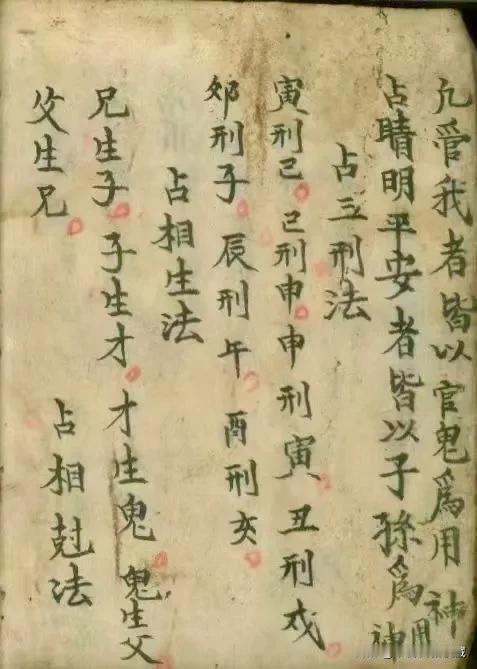 凢管我者皆以官鬼為用神
占晴明平安者皆以子孫為用神
占三刑法
寅刑己 己刑申 申刑寅 丑刑戌
郊刑子 辰刑午 酉刑亥
占相生法
兄生子 子生才 才生鬼 鬼生父
父生兄 占相尅法